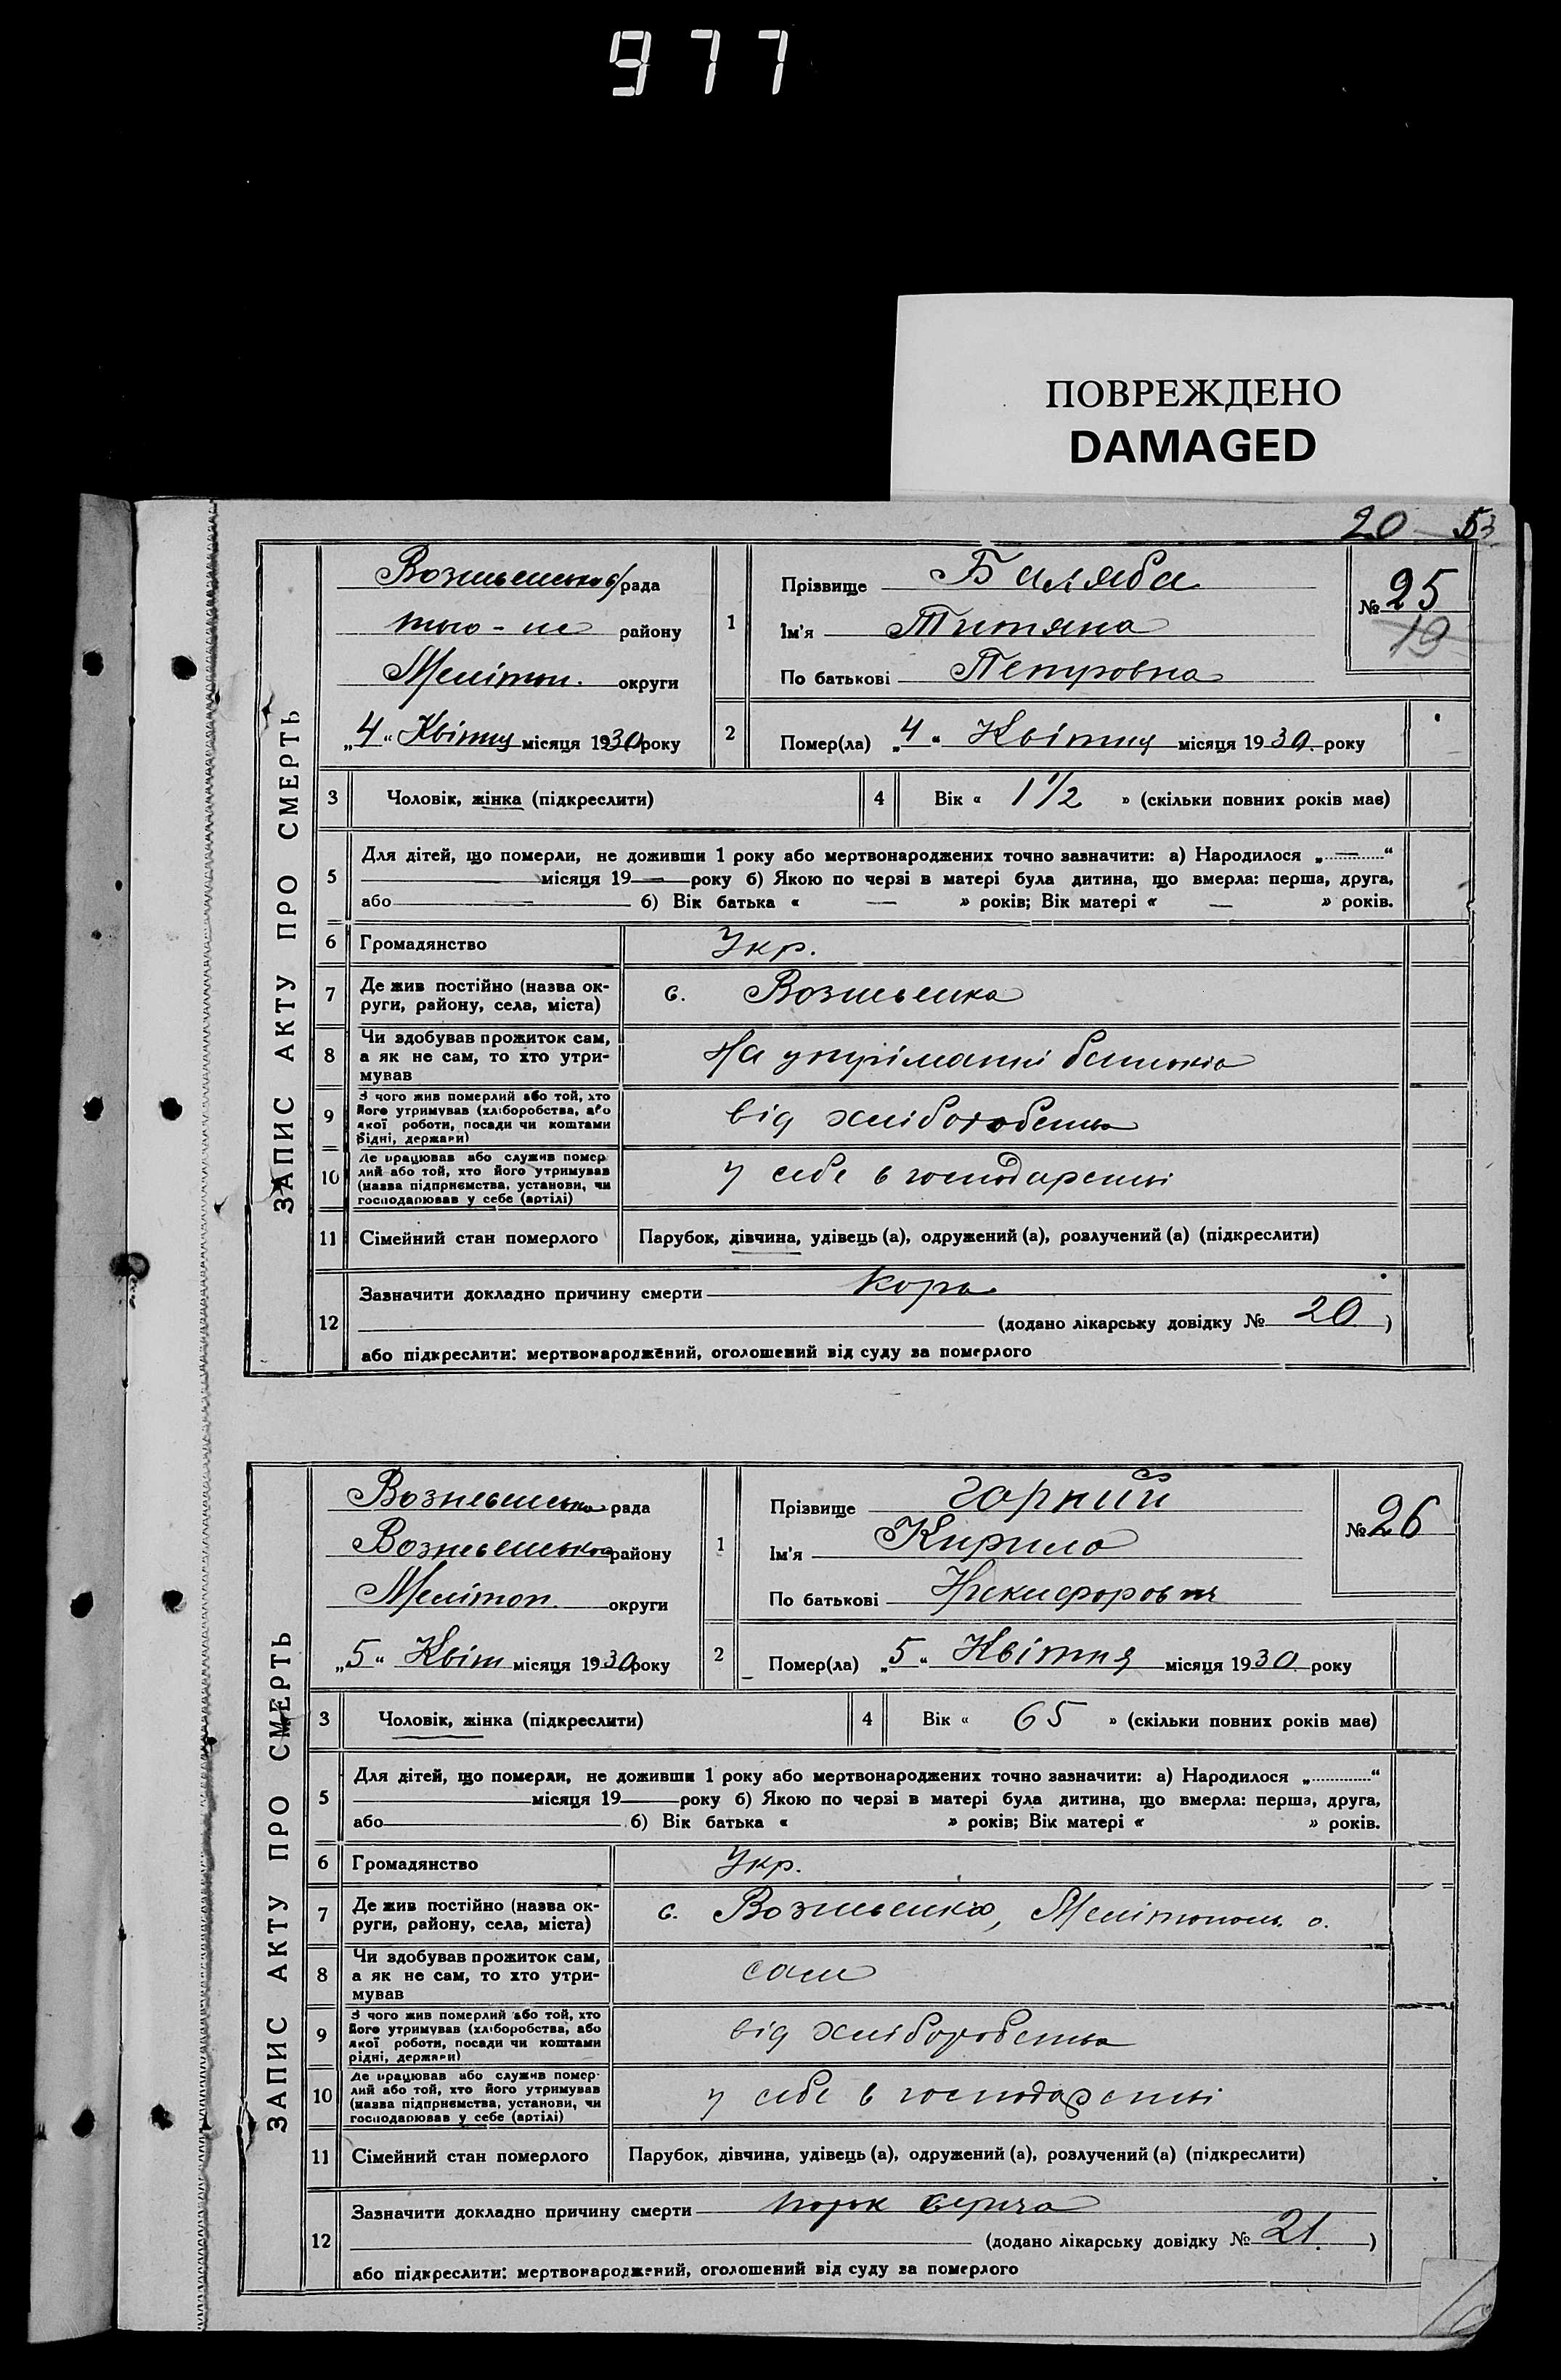 977
ПОВРЕЖДЕНО
DAMAGED
20 53
ЗАПИС АКТУ ПРО СМЕРТЬ
Вознесенська рада
того-ж району
Мелітоп. округи
„4“ Квітня місяця 1930 року
1
Прізвище Баляба
Ім'я Титяна
По батькові Петровна
№ 25
19
2
Помер(ла) „4“ Квітня місяця 1930. року
3 Чоловік, жінка (підкреслити)
4 Вік « 1 1/2 » (скільки повних років має)
5
Для дітей, що померли, не доживши 1 року або мертвонароджених точно зазначити: а) Народилося „ — “
— місяця 19 — року б) Якою по черзі в матері була дитина, що вмерла: перша, друга,
або — б) Вік батька « — » років; Вік матері « — » років.
6 Громадянство Укр.
7
Де жив постійно (назва ок-
руги, району, села, міста)
с. Вознесенка
8
Чи здобував прожиток сам,
а як не сам, то хто утри-
мував
На утріманні батьків
9
З чого жив померлий або той, хто
його утримував (хліборобства, або
якої роботи, посади чи коштами
рідні, держави)
від хліборобства
10
Де працював або служив помер-
лий або той, хто його утримував
(назва підприємства, установи, чи
господарював у себе (артілі)
у себе в господарстві
11 Сімейний стан померлого Парубок, дівчина, удівець (а), одружений (а), розлучений (а) (підкреслити)
12
Зазначити докладно причину смерти Кора
(додано лікарську довідку № 20 )
або підкреслити: мертвонароджений, оголошений від суду за померлого
ЗАПИС АКТУ ПРО СМЕРТЬ
Вознесенська рада
Вознесенського району
Мелітоп. округи
„5“ Квітн місяця 1930 року
1
Прізвище Горний
Ім'я Кирило
По батькові Никифорович
№ 26
2
Помер(ла) „5“ Квітня місяця 1930. року
3 Чоловік, жінка (підкреслити)
4 Вік « 65 » (скільки повних років має)
5
Для дітей, що померли, не доживши 1 року або мертвонароджених точно зазначити: а) Народилося „ “
місяця 19 року б) Якою по черзі в матері була дитина, що вмерла: перша, друга,
або б) Вік батька « » років; Вік матері « » років.
6 Громадянство Укр.
7
Де жив постійно (назва ок-
руги, району, села, міста)
с. Вознесенка, Мелітополь о.
8
Чи здобував прожиток сам,
а як не сам, то хто утри-
мував
сам
9
З чого жив померлий або той, хто
його утримував (хліборобства, або
якої роботи, посади чи коштами
рідні, держави)
від хліборобства
10
Де працював або служив помер-
лий або той, хто його утримував
(назва підприємства, установи, чи
господарював у себе (артілі)
у себе в господарстві
11 Сімейний стан померлого Парубок, дівчина, удівець (а), одружений (а), розлучений (а) (підкреслити)
12
Зазначити докладно причину смерти порок серця
(додано лікарську довідку № 21. )
або підкреслити: мертвонароджений, оголошений від суду за померлого